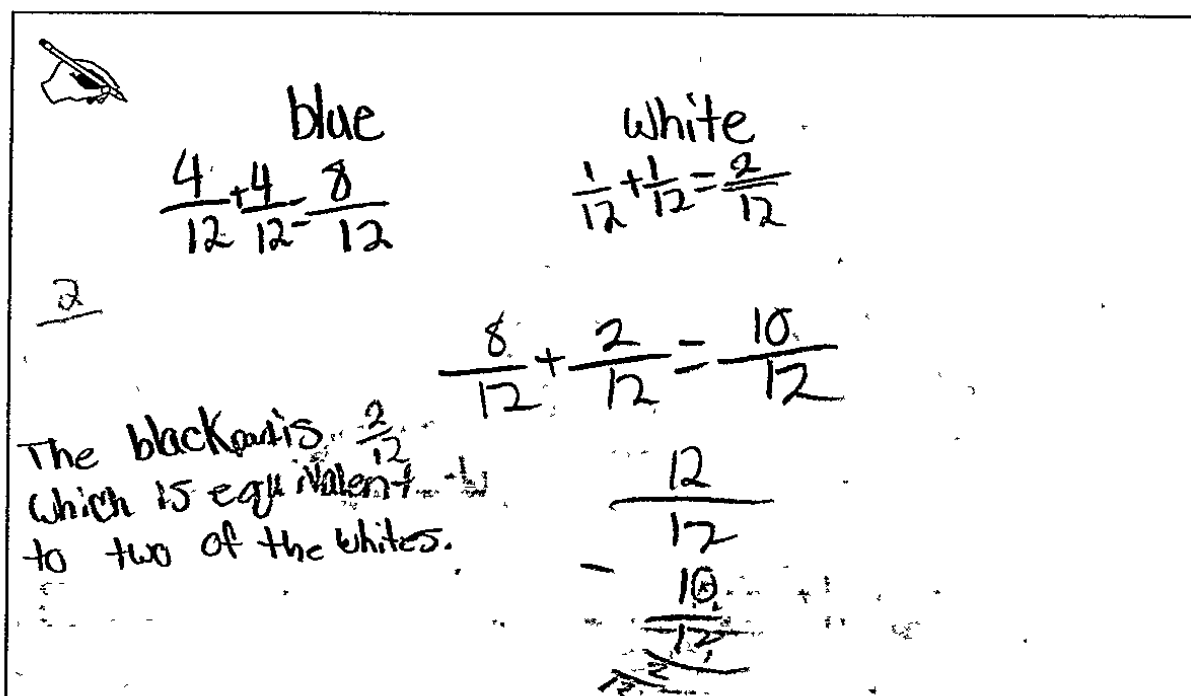 blue white
4/12 + 4/12 = 8/12 1/12 + 1/12 = 2/12
2
8/12 + 2/12 = 10/12
The black part is 2/12
which is equivalent
to two of the whites.
12/12
- 10/12
2/12